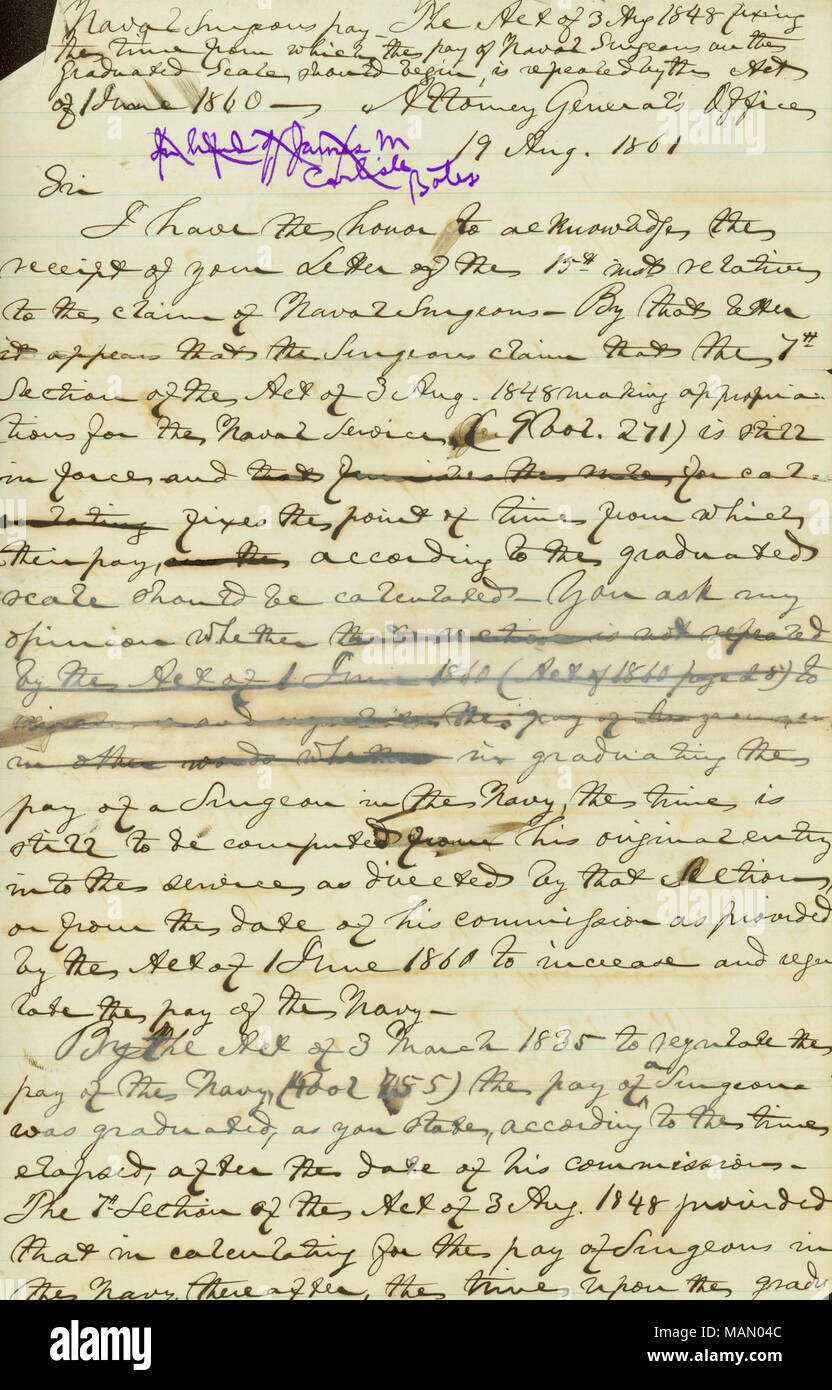 Naval Surgeons pay - The Act of 3 Aug 1848 fixing
the time from which the pay of Naval Surgeons on the
graduated Scale, should begin, is repealed by the Act
of 1 June 1860 - Attorney General's Office
19 Aug. 1861
In hand of James M
Carlisle
Bates
Sir
I have the honor to acknowledge the
receipt of your Letter of the 15th inst relative
to the claim of Naval Surgeons - By that letter
it appears that the Surgeons claim that the 7th
Section of the Act of 3 Aug. 1848 making appropria-
tions for the Naval Service, ( 9 vol. 271) is still
in force and that furnishes the rule, for cal-
culating fixes the point of time from which
their pay, on the according to the graduated
scale should be calculated - You ask my
opinion whether that section is not repealed
by the Act of 1 June 1860 (Act of 1860 page 25) to
the pay of
in other words whether in graduating the
pay of a Surgeon in the Navy, the time is
still to be computed from his original entry
into the service as directed by that Section,
or from the date of his commission as provided
by the Act of 1 June 1860 to increase and regu
late the pay of the Navy -
By the Act of 3 March 1835 to regulate the
pay of the Navy, (4 vol 755) the pay of a Surgeon
was graduated, as you state, according to the time
elapsed, after the date of his commission -
The 7th Section of the Act of 3 Aug. 1848 provided
that in calculating for the pay of Surgeons in
the Navy thereafter, the time upon the gradu
alamy stock photo
www.alamy.com
Image ID: MAN04C